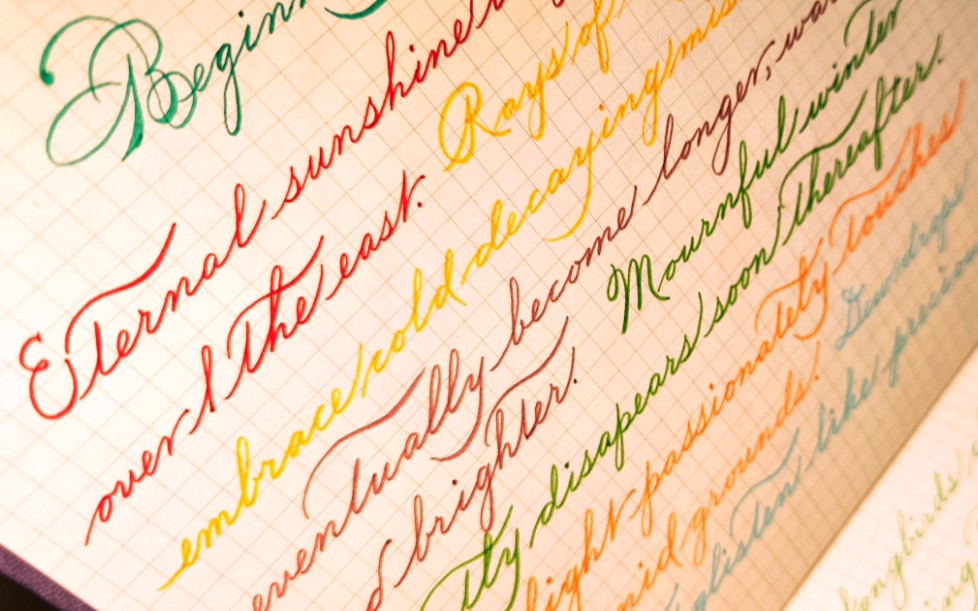 Eternal sunshine
over the east. Rays of
embrace cold decaying
eventually become longer,
brighter. Mournful winter
disapears soon thereafter.
light passionately touches
grounds. Dew drops
glisten like
songbirds